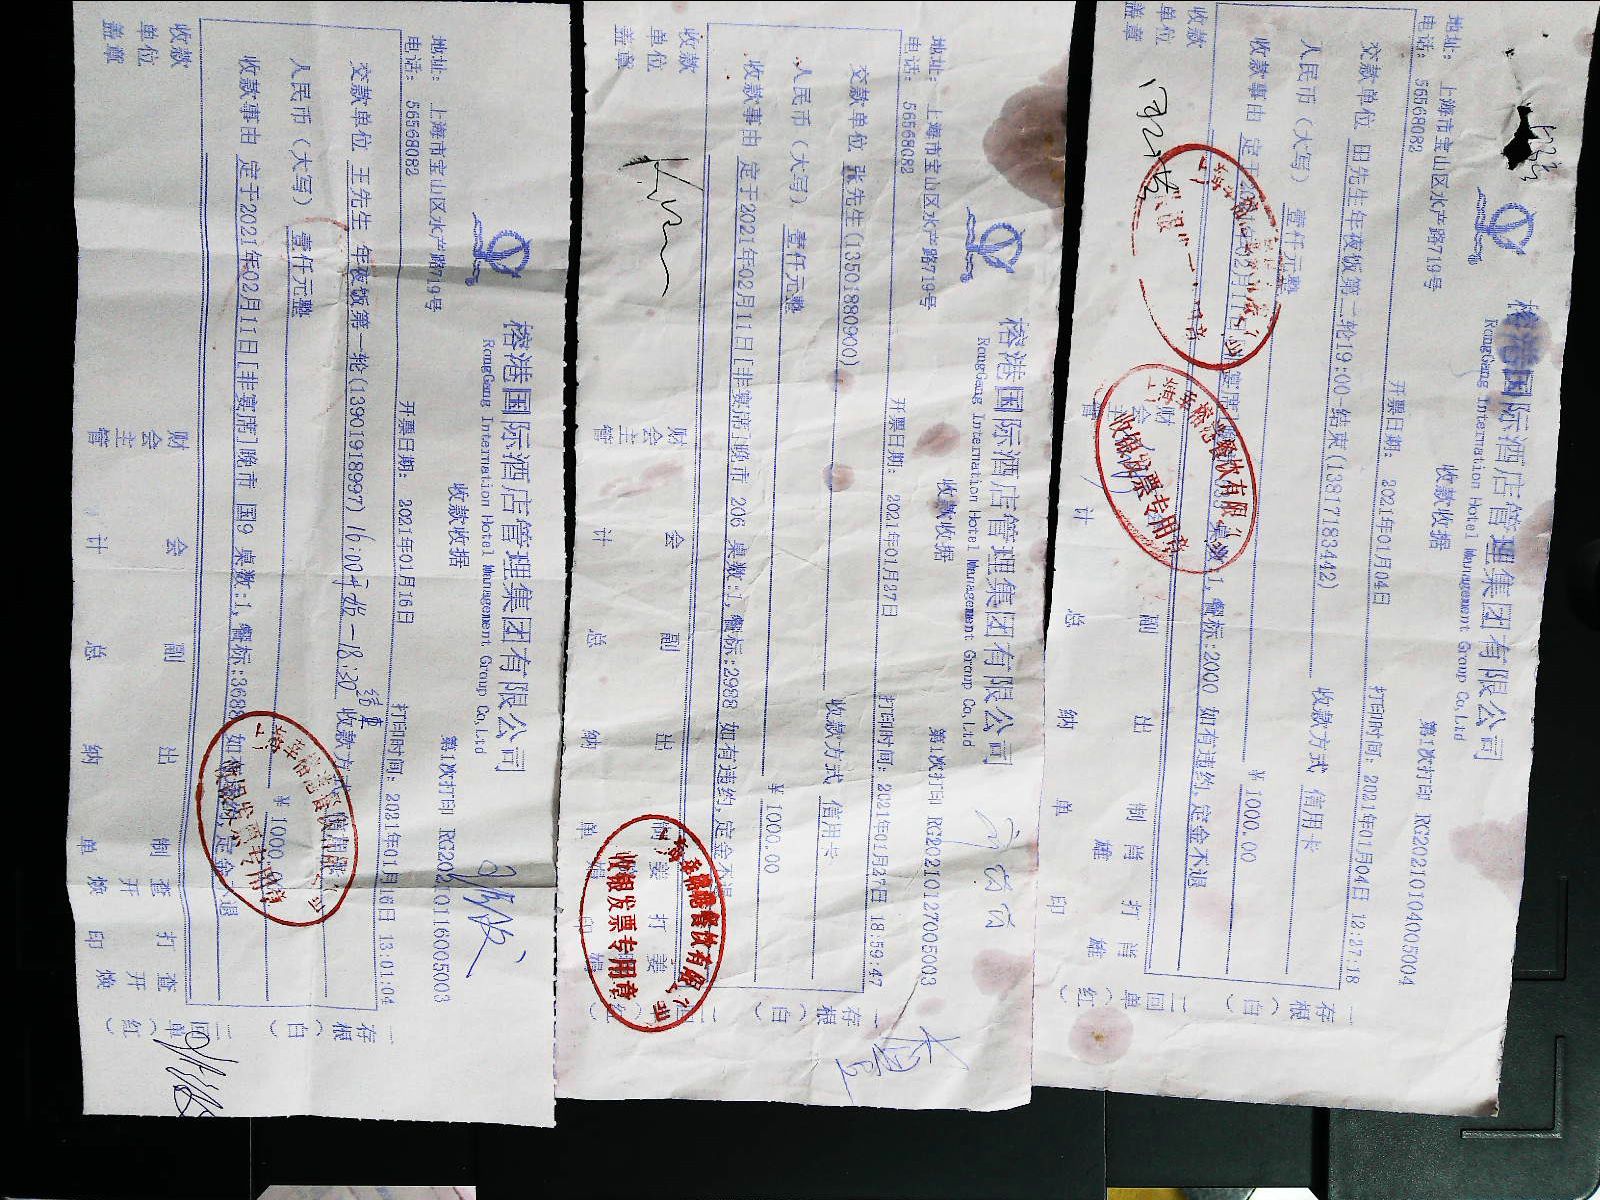 榕港国际酒店管理集团有限公司
RongGang Internation Hotel Management Group Co,Ltd
收款收据
第1次打印 RG20210116005003
地址: 上海市宝山区水产路719号
电话: 56568082
开票日期: 2021年01月16日
打印时间: 2021年01月16日 13:01:04
交款单位 王先生 年夜饭第一轮(13901918997) 16:00开始-18:30结束 收款方式
人民币(大写) 壹仟元整
￥1000.00
收款事由 定于2021年02月11日[非宴席]晚市 国9 桌数:1,餐标:3688 如有违约,定金不退
收款单位盖章
财会主管
会计
副总
出纳
制单 查开焕
打印 查开焕
一存根(白)
二回单(红)
榕港国际酒店管理集团有限公司
RongGang Internation Hotel Management Group Co,Ltd
收款收据
第1次打印 RG20210127005003
地址: 上海市宝山区水产路719号
电话: 56568082
开票日期: 2021年01月27日
打印时间: 2021年01月27日 18:59:47
交款单位 张先生(13501880900)
收款方式 信用卡
人民币(大写) 壹仟元整
￥1000.00
收款事由 定于2021年02月11日[非宴席]晚市 206 桌数:1,餐标:2988 如有违约,定金不退
收款单位盖章
财会主管
会计
副总
出纳
制单 姜娟
打印 姜娟
一存根(白)
二回单(红)
收银发票专用章
榕港国际酒店管理集团有限公司
RongGang Internation Hotel Management Group Co,Ltd
收款收据
第1次打印 RG20210104005004
地址: 上海市宝山区水产路719号
电话: 56568082
开票日期: 2021年01月04日
打印时间: 2021年01月04日 12:27:18
交款单位 田先生年夜饭第二轮19:00-结束(13817183442)
收款方式 信用卡
人民币(大写) 壹仟元整
￥1000.00
收款事由 定于2021年02月11日[非宴席] 桌数:1,餐标:2000 如有违约,定金不退
收款单位盖章
财会主管
计
副总
出纳
制单 肖雄
打印 肖雄
一存根(白)
二回单(红)
收银发票专用章